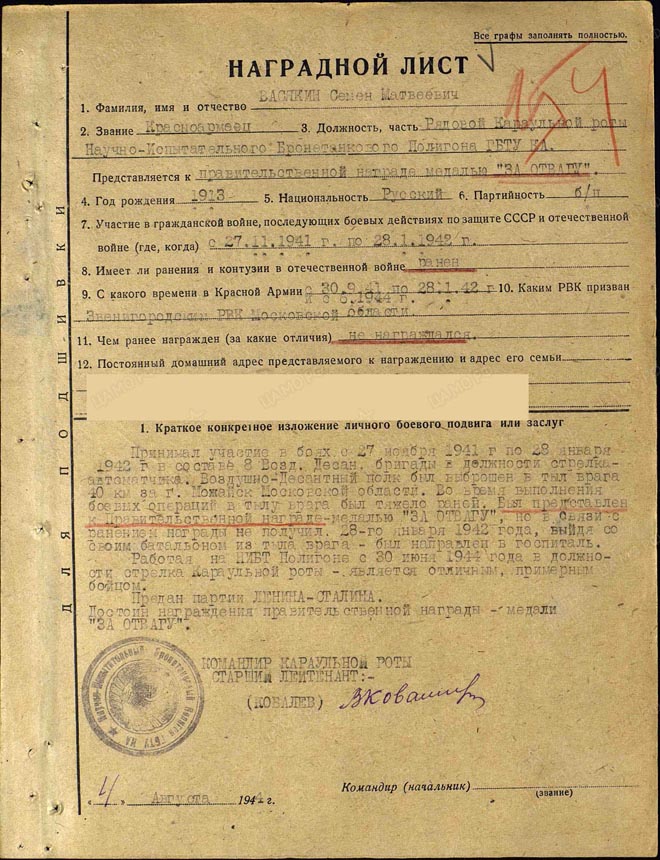 Все графы заполнять полностью.
НАГРАДНОЙ ЛИСТ
154
1. Фамилия, имя и отчество ВАСЯКИН Семен Матвеевич
2. Звание Красноармеец 3. Должность, часть Рядовой Караульной роты
Научно-Испытательного Бронетанкового Полигона ГБТУ КА.
Представляется к правительственной награде медалью "ЗА ОТВАГУ".
4. Год рождения 1913 5. Национальность Русский 6. Партийность б/п
7. Участие в гражданской войне, последующих боевых действиях по защите СССР и отечественной
войне (где, когда) с 27.11.1941 г. по 28.1.1942 г.
8. Имеет ли ранения и контузии в отечественной войне ранен
9. С какого времени в Красной Армии с 30.9.41 по 28.1.42 г 10. Каким РВК призван
и с 6.1944 г.
Звенигородским РВК Московской области.
11. Чем ранее награжден (за какие отличия) не награждался.
12. Постоянный домашний адрес представляемого к награждению и адрес его семьи
1. Краткое конкретное изложение личного боевого подвига или заслуг
Принимал участие в боях с 27 ноября 1941 г по 28 января
1942 г в составе 8 Возд. Десан. бригады в должности стрелка-
автоматчика. Воздушно-Десантный полк был выброшен в тыл врага
40 км за г. Можайск Московской области. Во время выполнения
боевых операций в тылу врага был тяжело ранен. Был представлен
к Правительственной награде-медалью "ЗА ОТВАГУ", но в связи с
ранением награды не получил. 28-го января 1942 года, выйдя со
своим батальоном из тыла врага - был направлен в госпиталь.
Работая на НИБТ Полигоне с 30 июня 1944 года в должно-
сти стрелка Караульной роты - является отличным, примерным
бойцом.
Предан партии ЛЕНИНА-СТАЛИНА.
Достоин награждения правительственной награды - медали
"ЗА ОТВАГУ".
КОМАНДИР КАРАУЛЬНОЙ РОТЫ
СТАРШИЙ ЛЕЙТЕНАНТ:-
(КОВАЛЕВ) ВКовалев
Научно-Испытательный Бронетанковый Полигон ГБТУ КА
Командир (начальник)
(звание)
"4" Августа 1944 г.
ДЛЯ ПОДШИВКИ